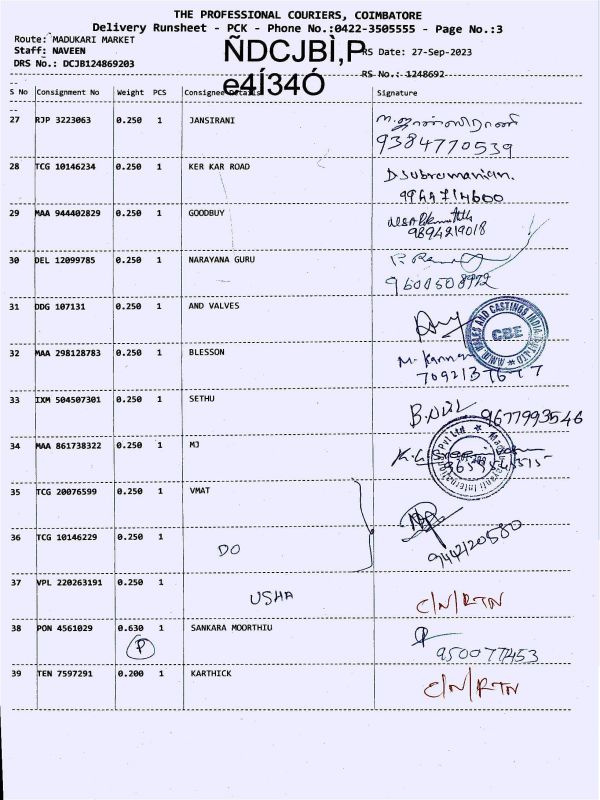 THE PROFESSIONAL COURIERS, COIMBATORE
Delivery Runsheet - PCK - Phone No.:0422-3505555 - Page No.:3
Route: MADUKARI MARKET
Staff: NAVEEN
DRS No.: DCJB124869203
ÑDCJBÌ,P
e4Í34Ó
RS Date: 27-Sep-2023
RS No.: 1248692
S No Consignment No Weight PCS Consignee Details Signature
27 RJP 3223063 0.250 1 JANSIRANI
9384770539
28 TCG 10146234 0.250 1 KER KAR ROAD D Subramanian.
29 MAA 944402829 0.250 1 GOODBUY
9894219018
30 DEL 12099785 0.250 1 NARAYANA GURU
31 DDG 107131 0.250 1 AND VALVES
CBE
32 MAA 298128783 0.250 1 BLESSON
33 IXM 504507301 0.250 1 SETHU 9677993546
34 MAA 861738322 0.250 1 MJ
35 TCG 20076599 0.250 1 VMAT
36 TCG 10146229 0.250 1 DO
9442120580
37 VPL 220263191 0.250 1 USHA C/N/RTN
38 PON 4561029 0.630 1 SANKARA MOORTHIU
P
39 TEN 7597291 0.200 1 KARTHICK C/N/RTN